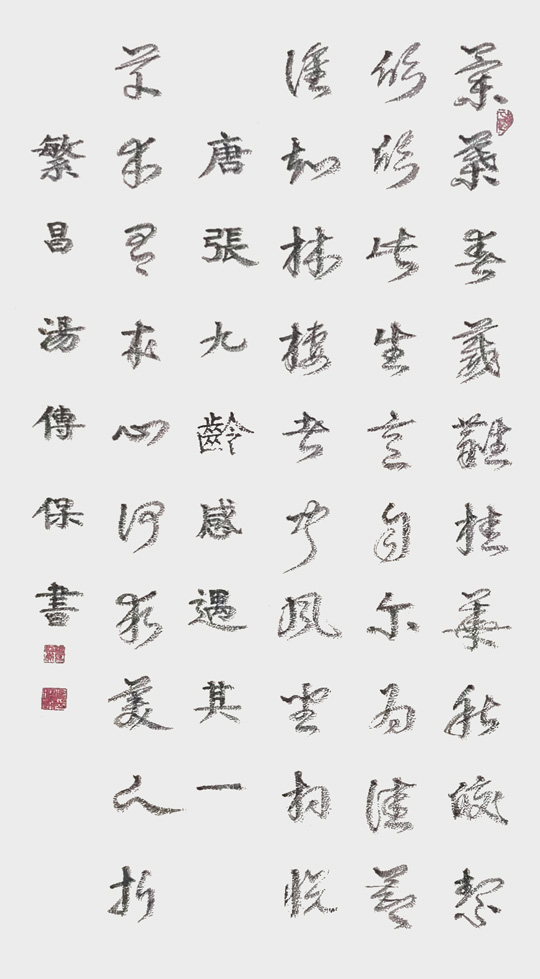 蘭葉春葳蕤桂華秋皎絜
欣欣此生意自尔為佳節
誰知林棲者聞風坐相悅
唐張九齡感遇其一
草木有本心何求美人折
繁昌湯傳保書